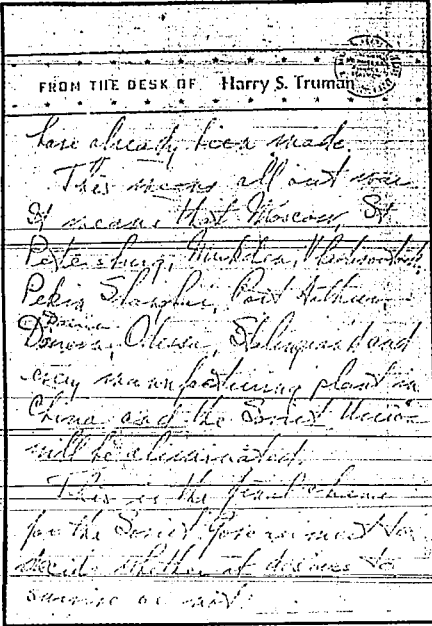 FROM THE DESK OF Harry S. Truman
have already been made.
This means all out war.
It means that Moscow, St.
Petersburg, Mukden, Vladivostock,
Pekin, Shanghai, Port Arthur,
Dairen, Odessa, Stalingrad and
every manufacturing plant in
China and the Soviet Union
will be eliminated.
This is the final chance
for the Soviet Government to
decide whether it desires to
survive or not.